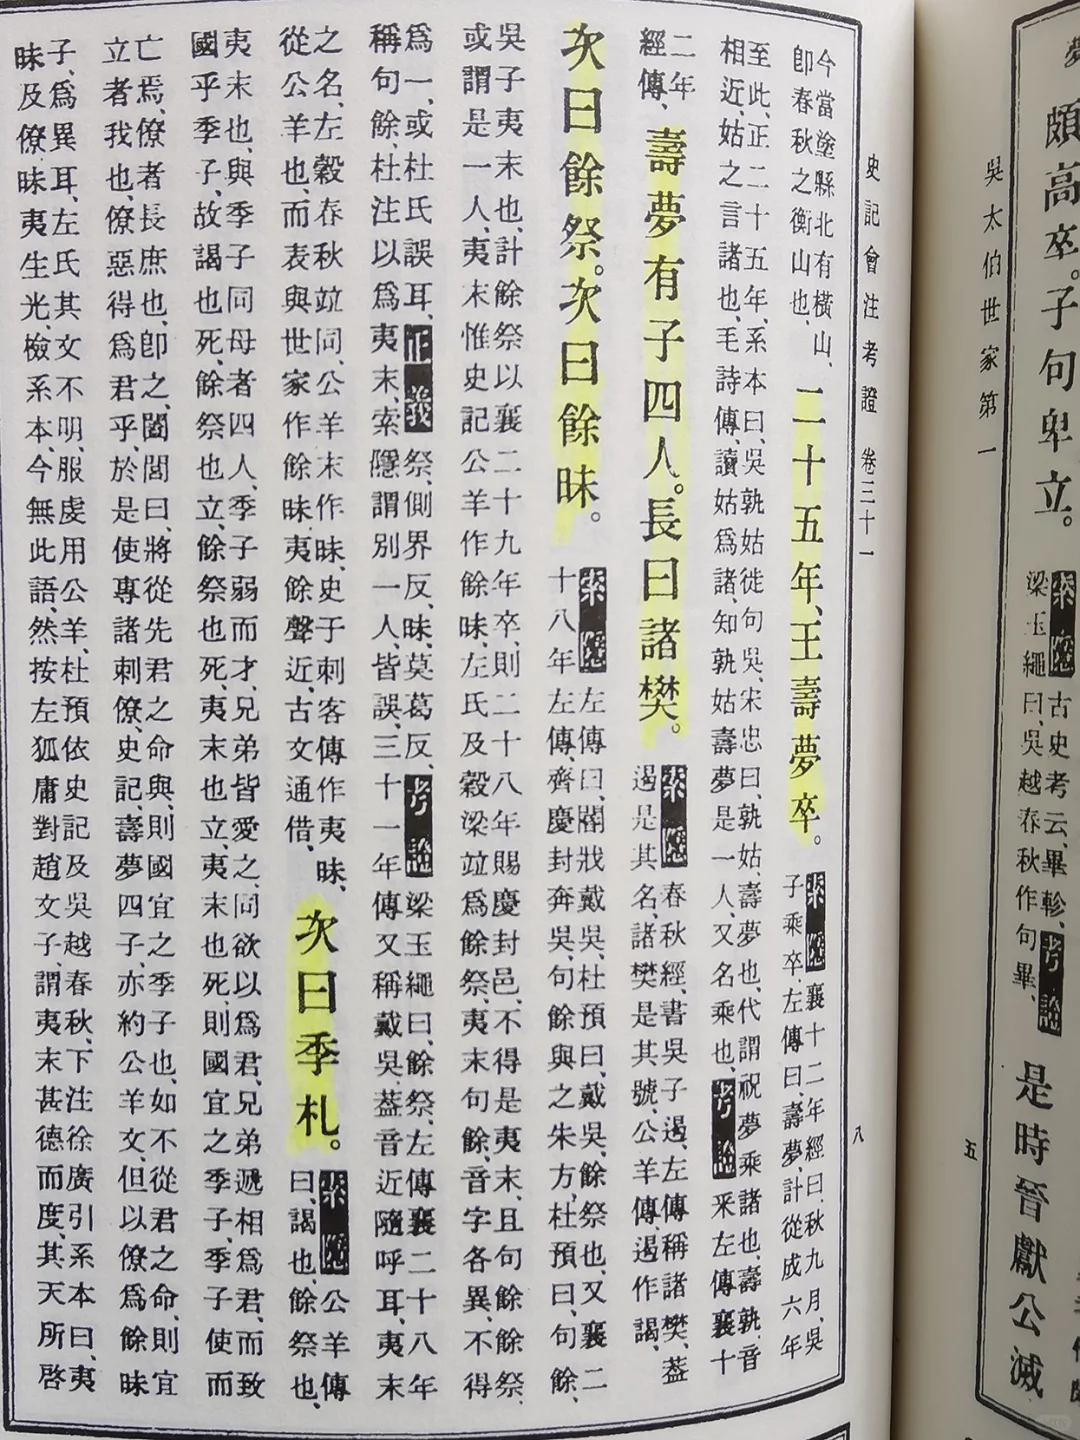 夢
頗高卒。子句卑立。
索隱
古史考云、畢軫、
梁玉繩曰、吳越春秋作句畢、
考證
是時晉獻公滅
吳太伯世家第一
五
史記會注考證 卷三十一
八
今當塗縣北有橫山、
卽春秋之衡山也、
二十五年、王壽夢卒。
索隱
襄十二年經曰、秋九月、吳
子乘卒、左傳曰、壽夢、計從成六年
至此、正二十五年、系本曰、吳孰姑徙句吳、宋忠曰、孰姑、壽夢也、代謂祝夢乘諸也、壽孰、音
相近、姑之言諸也、毛詩傳、讀姑爲諸、知孰姑壽夢是一人、又名乘也、
考證
釆左傳襄十
二年
經傳、
壽夢有子四人。長曰諸樊。
索隱
春秋經、書吳子遏、左傳稱諸樊、蓋
遏是其名、諸樊是其號、公羊傳、遏作謁、
次曰餘祭。次曰餘眛。
索隱
左傳曰、閽戕戴吳、杜預曰、戴吳、餘祭也、又襄二
十八年左傳、齊慶封奔吳、句餘與之朱方、杜預曰、句餘、
吳子夷末也、計餘祭以襄二十九年卒、則二十八年賜慶封邑、不得是夷末、且句餘餘祭、
或謂是一人、夷末惟史記公羊作餘眛、左氏及穀梁竝爲餘祭、夷末句餘、音字各異、不得
爲一、或杜氏誤耳、
正義
祭、側界反、眛、莫葛反、
考證
梁玉繩曰、餘祭、左傳襄二十八年
稱句餘、杜注以爲夷末、索隱謂別一人、皆誤、三十一年傳又稱戴吳、蓋音近隨呼耳、夷末
之名、左穀春秋竝同、公羊末作眛、史于刺客傳作夷眛、
從公羊也、而表與世家作餘眛、夷餘聲近、古文通借、
次曰季札。
索隱
公羊傳
曰、謁也、餘祭也、
夷末也、與季子同母者四人、季子弱而才、兄弟皆愛之、同欲以爲君、兄弟遞相爲君、而致
國乎季子、故謁也死、餘祭也立、餘祭也死、夷末也立、夷末也死、則國宜之季子、季子使而
亡焉、僚者長庶也、卽之、闔閭曰、將從先君之命與、則國宜之季子也、如不從君之命、則宜
立者我也、僚惡得爲君乎、於是使專諸刺僚、史記、壽夢四子、亦約公羊文、但以僚爲餘眛
子、爲異耳、左氏其文不明、服虔用公羊、杜預依史記及吳越春秋、下注徐廣引系本曰、夷
眛及僚、眛夷生光、檢系本、今無此語、然按左狐庸對趙文子、謂夷末甚德而度、其天所啓